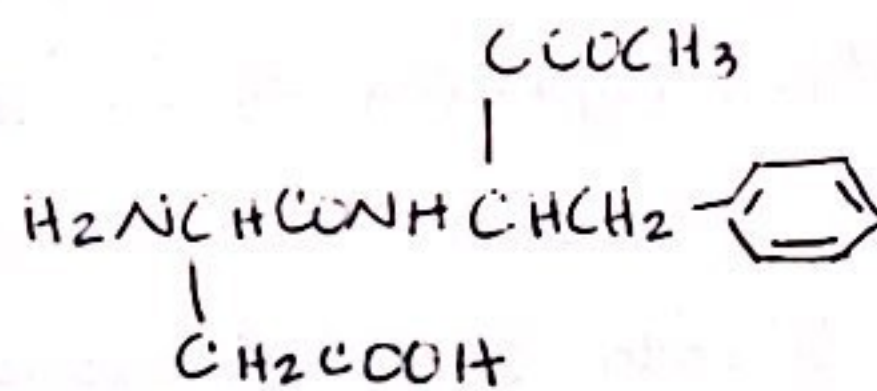 CCOCH3
H2NCHCONHCHCH2
CH2COOH